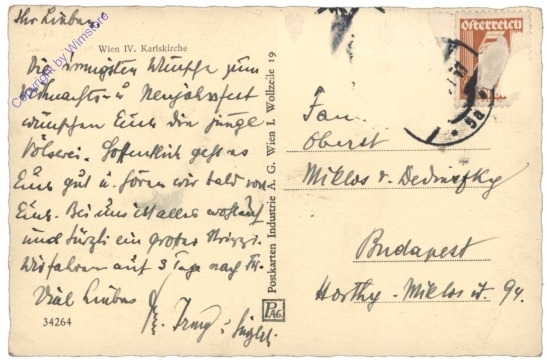 Ihr Lieben!
Wien IV. Karlskirche
Die innigsten Wünsche zum
Weihnachts- u Neujahrsfest
wünschen Euch die junge
Hoffentlich geht es
Euch gut u. hören wir bald von
Euch. Bei uns ist alles wohlauf
und ein großer
Wir fahren auf 3 Tage nach
Viel Liebes
34264
Postkarten Industrie A. G. Wien I. Wollzeile 19
PAG
Österreich
5
Fam.
Oberst
Miklos v.
Budapest
Horthy-Miklos út 94.
Copyright by Wimstore